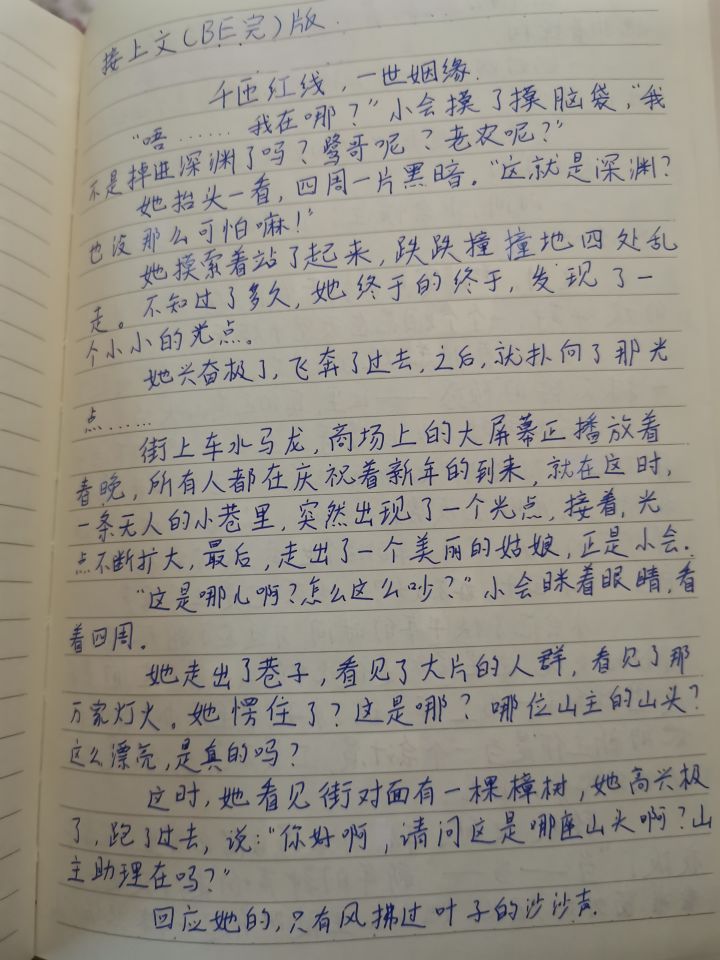 接上文(BE完)版.
千匝红线,一世姻缘.
“唔……我在哪?”小会摸了摸脑袋,“我
不是掉进深渊了吗?鹭哥呢?老农呢?”
她抬头一看,四周一片黑暗。“这就是深渊?
也没那么可怕嘛!”
她摸索着站了起来,跌跌撞撞地四处乱
走。不知过了多久,她终于的终于,发现了一
个小小的光点。
她兴奋极了,飞奔了过去,之后,就扑向了那光
点……
街上车水马龙,商场上的大屏幕正播放着
春晚,所有人都在庆祝着新年的到来,就在这时,
一条无人的小巷里,突然出现了一个光点,接着,光
点不断扩大,最后,走出了一个美丽的姑娘,正是小会.
“这是哪儿啊?怎么这么吵?”小会眯着眼睛,看
着四周。
她走出了巷子,看见了大片的人群,看见了那
万家灯火。她愣住了?这是哪?哪位山主的山头?
这么漂亮,是真的吗?
这时,她看见街对面有一棵樟树,她高兴极
了,跑了过去,说:“你好啊,请问这是哪座山头啊?山
主助理在吗?”
回应她的,只有风拂过叶子的沙沙声.